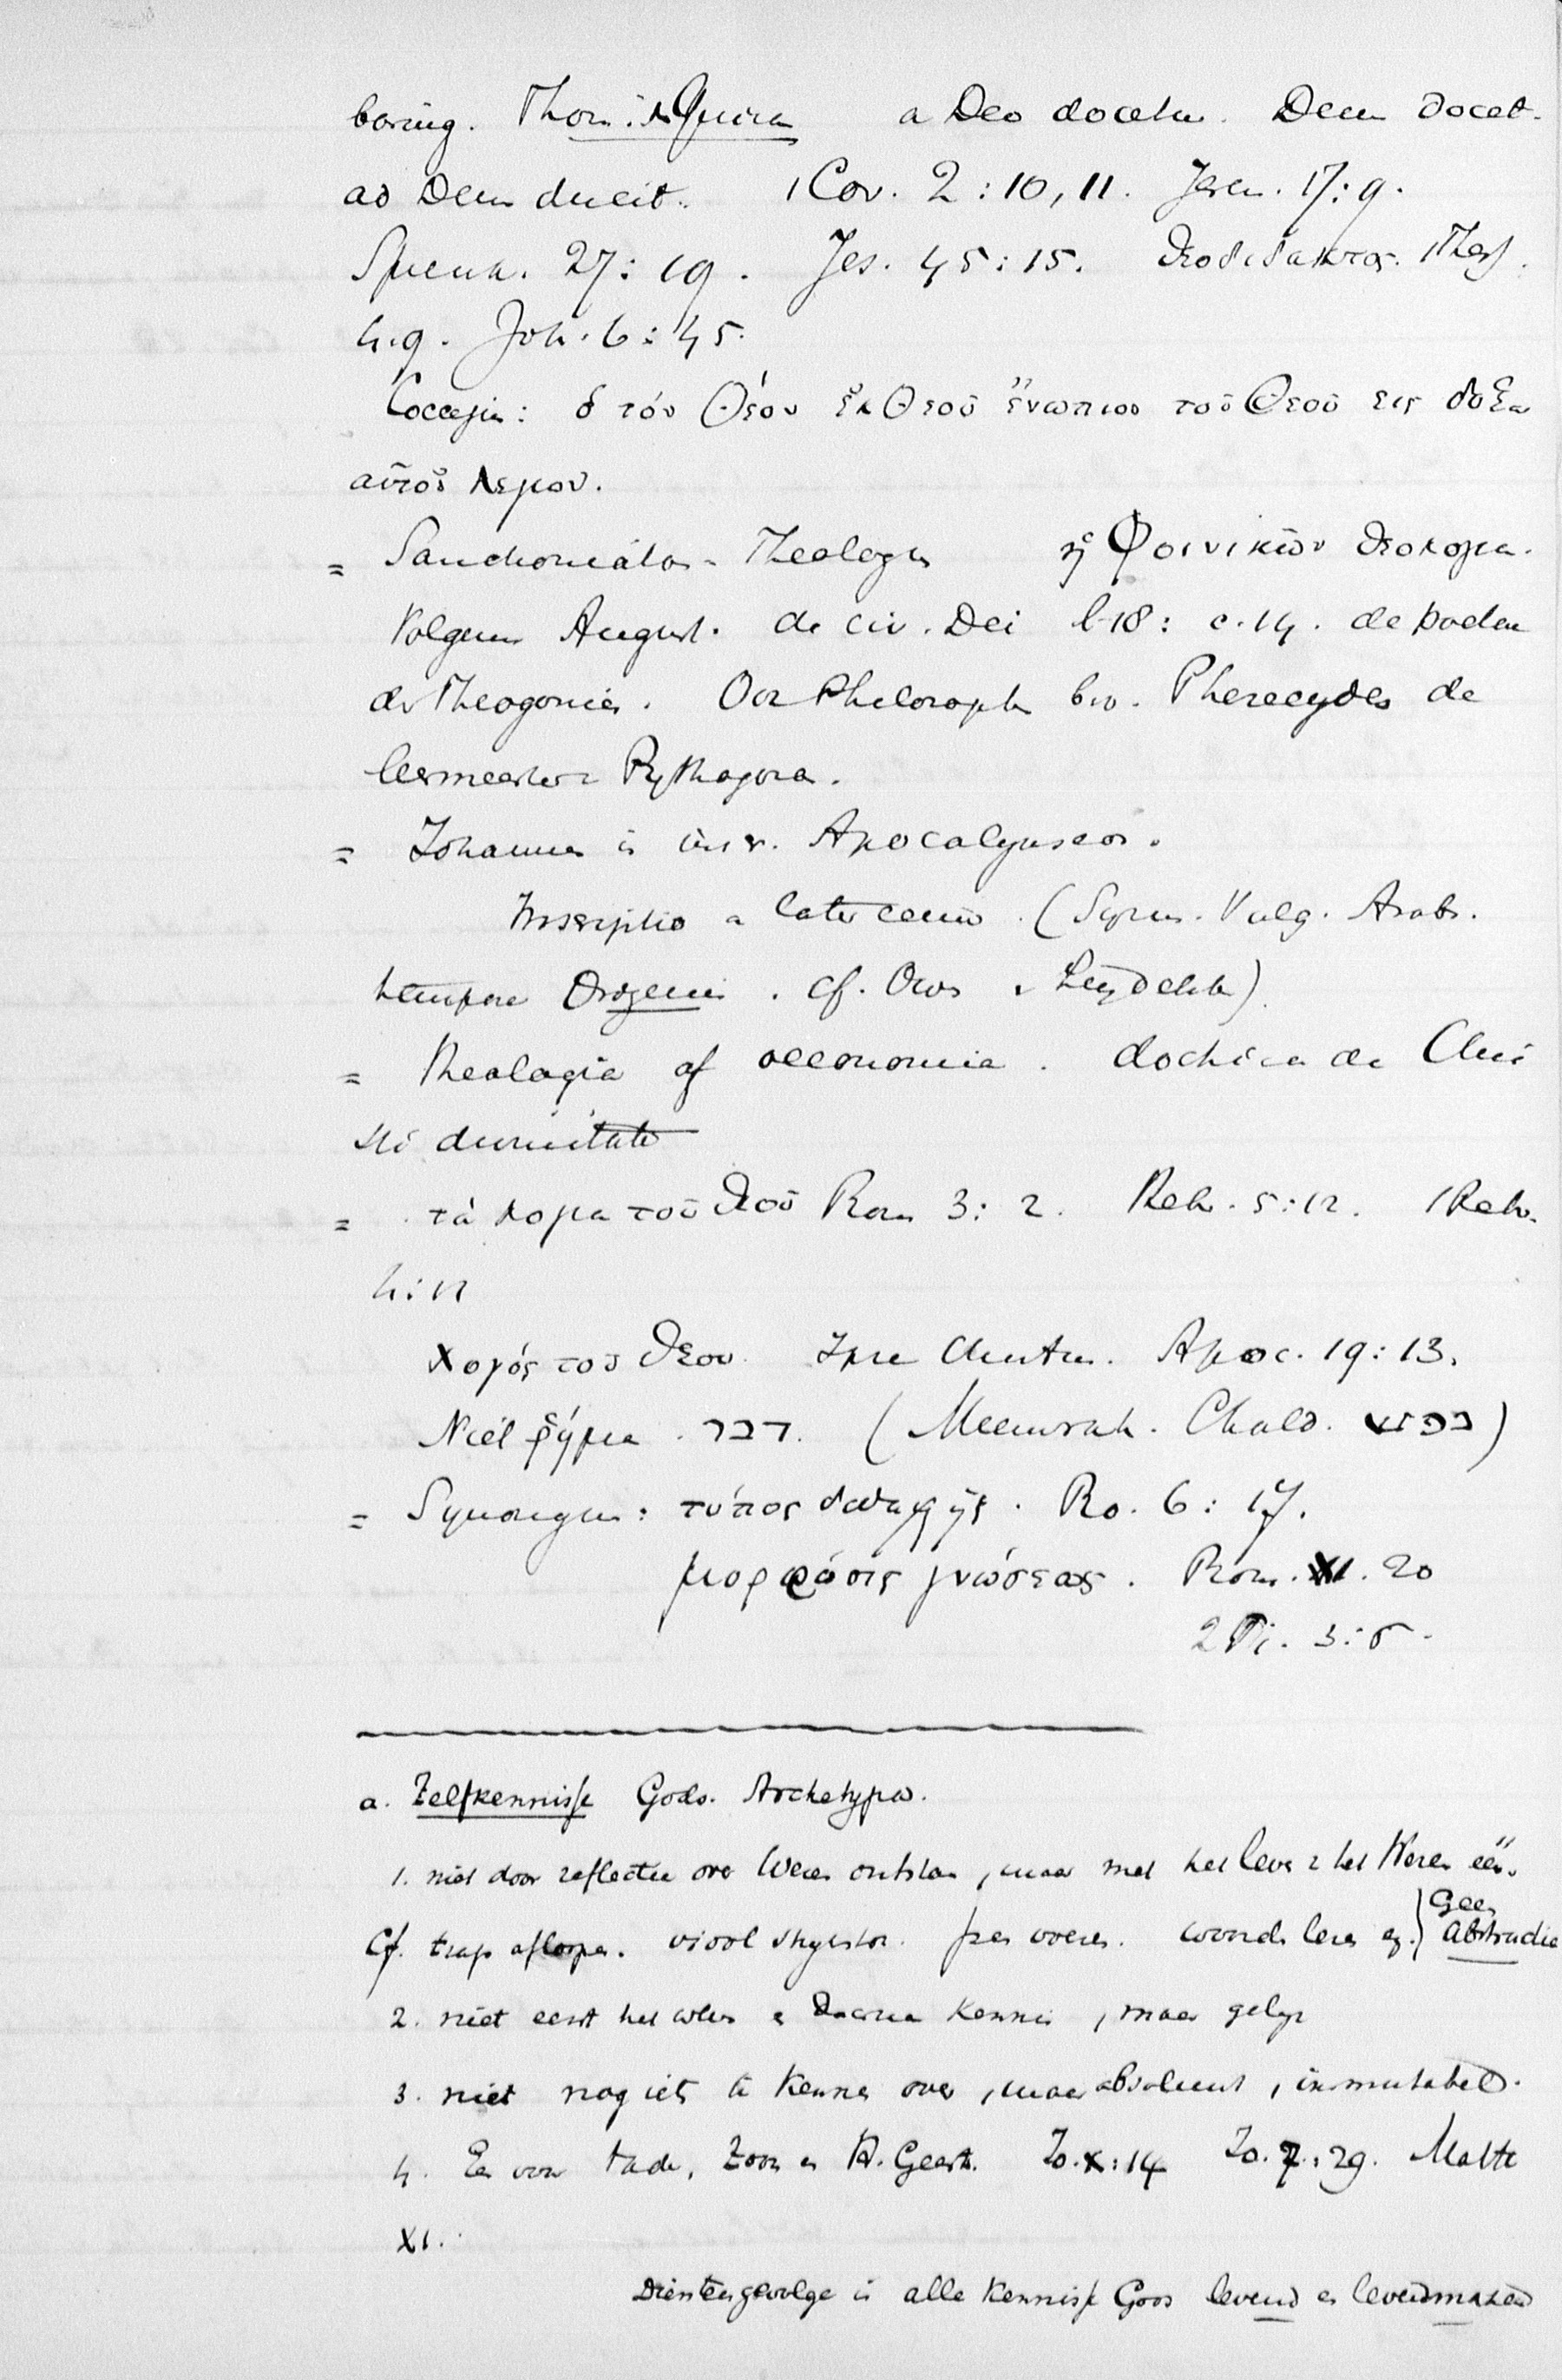 a Deo docetur. Deum docet.
ad Deum ducit. 1 Cor. 2:10, 11. Jerem. 17:9.
Spreuk. 27:19. Jes. 45:15. θεοδιδακτος. 1 Thess.
4.9. Joh. 6:45.
Coccejus: ὁ τόν Θεόν ἐκ Θεοῦ ἐνωπιον τοῦ Θεοῦ εις δοξαν
αὐτοῦ λεγων.
= Sanchoniaton - Theologus ἡ Φοινικῶν θεολογια.
Volgens August. de civ. Dei l. 18: c. 14. de poëten
de Theogonieën. Ook Philosophen bv. Pherecydes de
leermeester v. Pythagoras.
= Johannes in inscr. Apocalypseos.
Inscriptio a later (Syrus. Vulg. Arabs.
tempore Origenis. cf. Leydekker)
= Theologia of oeconomia. doctrina de Chri
sti divinitate
= τά λογια τοῦ θεοῦ Rom 3:2. Hebr. 5:12. 1 Petr.
4:11
λογός τοῦ θεου. Ipse Christus. Apoc. 19:13.
Niet ῥῆμα. דבר. (Meemrah. Chald.)
= Synoniem: τύπος διδαχῆς. Ro. 6:17.
μορφῶσις γνώσεως. Rom. II. 20
2 Ti. 3:5.
a. Zelfkennisse Gods. Archetypa.
1. niet door reflectie over Wezen ontstaan, maar met het leven v. het Wezen één.
Cf. trap aflopen. viool strijkstok. woorden lezen ez. } Geen
Abstractie
2. niet eerst het wezen en daarna kennis, maar gelijk
3. niet nog iets te kennen over, maar absoluut, immutabel.
4. En van Vader, Zoon en H. Geest. Jo. X:14 Jo. 7:29. Matth
XI.
Dientengevolge is alle kennisse Gods levend en levendmakend